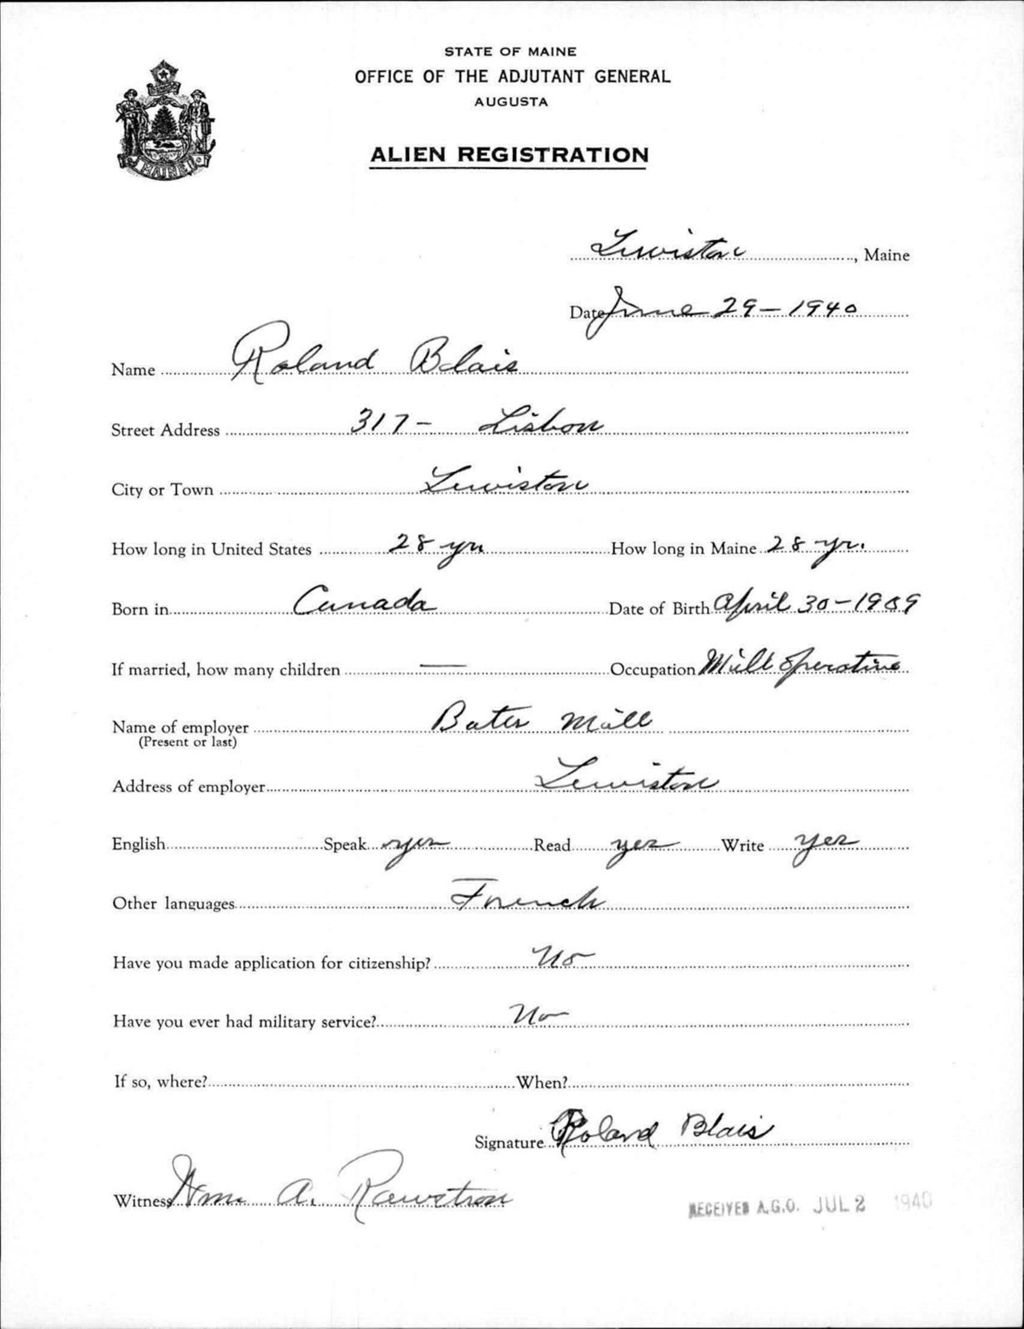 STATE OF MAINE
OFFICE OF THE ADJUTANT GENERAL
AUGUSTA
ALIEN REGISTRATION
MAINE
Lewiston, Maine
Date June 29-1940
Name Roland Blais
Street Address 317- Lisbon
City or Town Lewiston
How long in United States 28 yrs How long in Maine 28 yr.
Born in Canada Date of Birth April 30-1909
If married, how many children — Occupation Mill Operative
Name of employer Bates Mill
(Present or last)
Address of employer Lewiston
English Speak yes Read yes Write yes
Other languages French
Have you made application for citizenship? No
Have you ever had military service? No
If so, where? When?
Signature Roland Blais
Witness Wm. A. Rawstron
RECEIVED A.G.O. JUL 2 1940